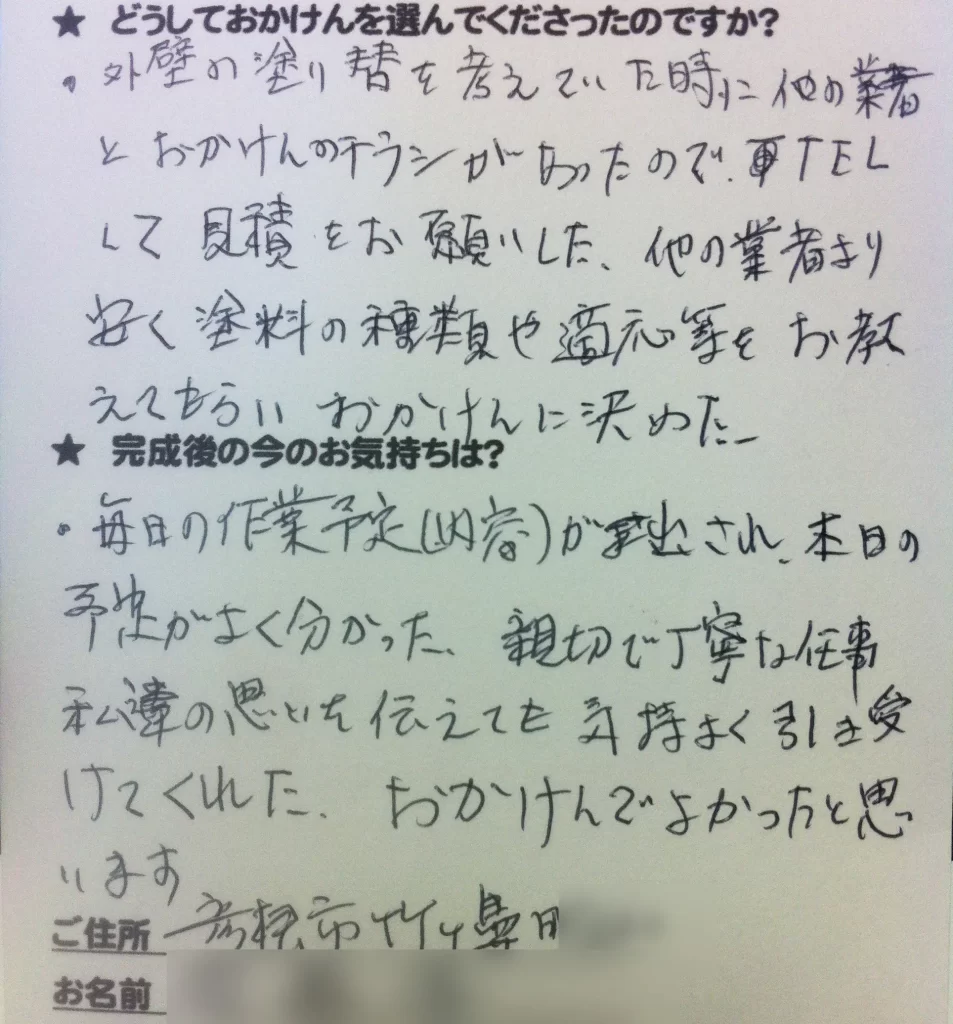 ★ どうしておかけんを選んでくださったのですか?
・外壁の塗り替を考えていた時に他の業者
とおかけんのチラシがあったので、TEL
して見積をお願いした、他の業者より
安く塗料の種類や適応等をお教
えてもらいおかけんに決めた
★ 完成後の今のお気持ちは?
・毎日の作業予定(内容)が提出され、本日の
予定がよく分かった、親切で丁寧な仕事
私達の思いを伝えても気持よく引き受
けてくれた、おかけんでよかったと思
います
ご住所 彦根市竹ヶ鼻町
お名前